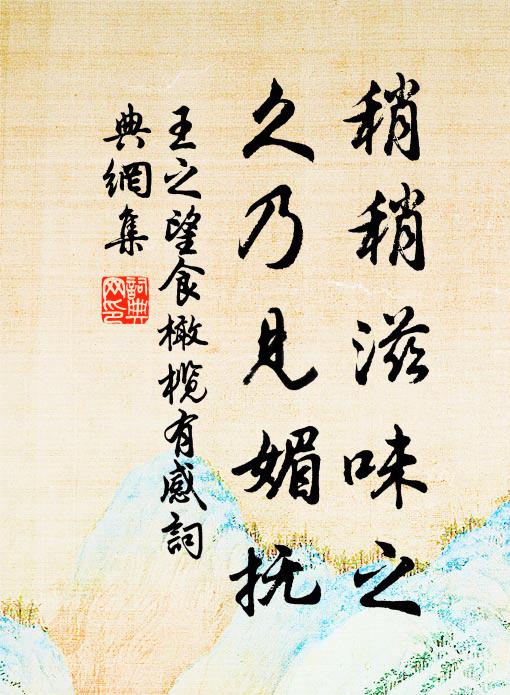 稍稍滋味之
久乃見媚抚
王之望食橄榄有感詞
典網集
詞典網印